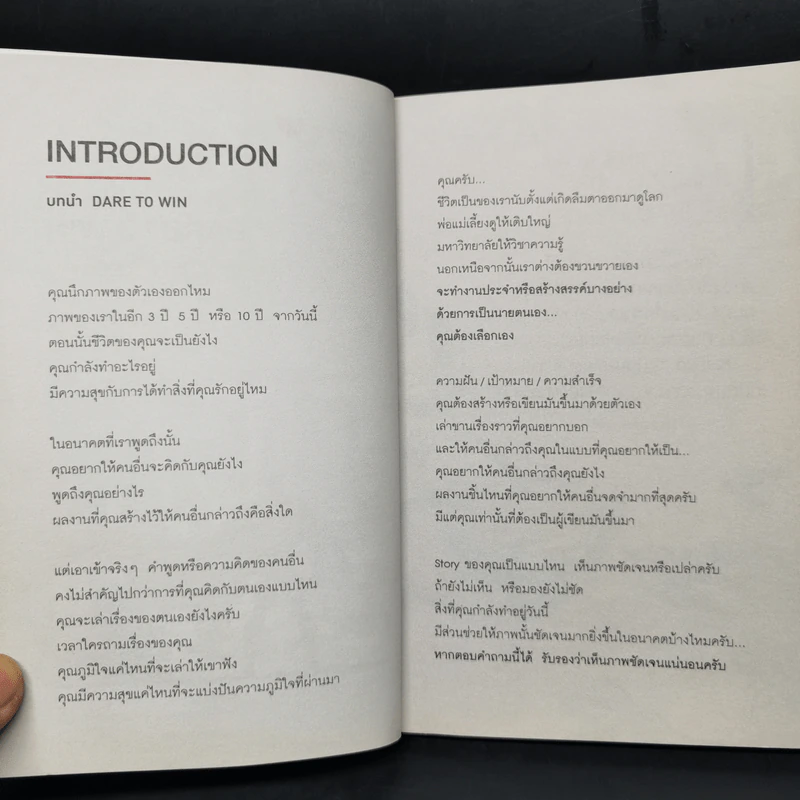 INTRODUCTION
บทนำ DARE TO WIN
คุณนึกภาพของตัวเองออกไหม
ภาพของเราในอีก 3 ปี 5 ปี หรือ 10 ปี จากวันนี้
ตอนนั้นชีวิตของคุณจะเป็นยังไง
คุณกำลังทำอะไรอยู่
มีความสุขกับการได้ทำสิ่งที่คุณรักอยู่ไหม
ในอนาคตที่เราพูดถึงนั้น
คุณอยากให้คนอื่นจะคิดกับคุณยังไง
พูดถึงคุณอย่างไร
ผลงานที่คุณสร้างไว้ให้คนอื่นกล่าวถึงคือสิ่งใด
แต่เอาเข้าจริงๆ คำพูดหรือความคิดของคนอื่น
คงไม่สำคัญไปกว่าการที่คุณคิดกับตนเองแบบไหน
คุณจะเล่าเรื่องของตนเองยังไงครับ
เวลาใครถามเรื่องของคุณ
คุณภูมิใจแค่ไหนที่จะเล่าให้เขาฟัง
คุณมีความสุขแค่ไหนที่จะแบ่งปันความภูมิใจที่ผ่านมา
คุณครับ...
ชีวิตเป็นของเรานับตั้งแต่เกิดลืมตาออกมาดูโลก
พ่อแม่เลี้ยงดูให้เติบใหญ่
มหาวิทยาลัยให้วิชาความรู้
นอกเหนือจากนั้นเราต่างต้องขวนขวายเอง
จะทำงานประจำหรือสร้างสรรค์บางอย่าง
ด้วยการเป็นนายตนเอง...
คุณต้องเลือกเอง
ความฝัน / เป้าหมาย / ความสำเร็จ
คุณต้องสร้างหรือเขียนมันขึ้นมาด้วยตัวเอง
เล่าขานเรื่องราวที่คุณอยากบอก
และให้คนอื่นกล่าวถึงคุณในแบบที่คุณอยากให้เป็น...
คุณอยากให้คนอื่นกล่าวถึงคุณยังไง
ผลงานชิ้นไหนที่คุณอยากให้คนอื่นจดจำมากที่สุดครับ
มีแต่คุณเท่านั้นที่ต้องเป็นผู้เขียนมันขึ้นมา
Story ของคุณเป็นแบบไหน เห็นภาพชัดเจนหรือเปล่าครับ
ถ้ายังไม่เห็น หรือมองยังไม่ชัด
สิ่งที่คุณกำลังทำอยู่วันนี้
มีส่วนช่วยให้ภาพนั้นชัดเจนมากยิ่งขึ้นในอนาคตบ้างไหมครับ...
หากตอบคำถามนี้ได้ รับรองว่าเห็นภาพชัดเจนแน่นอนครับ